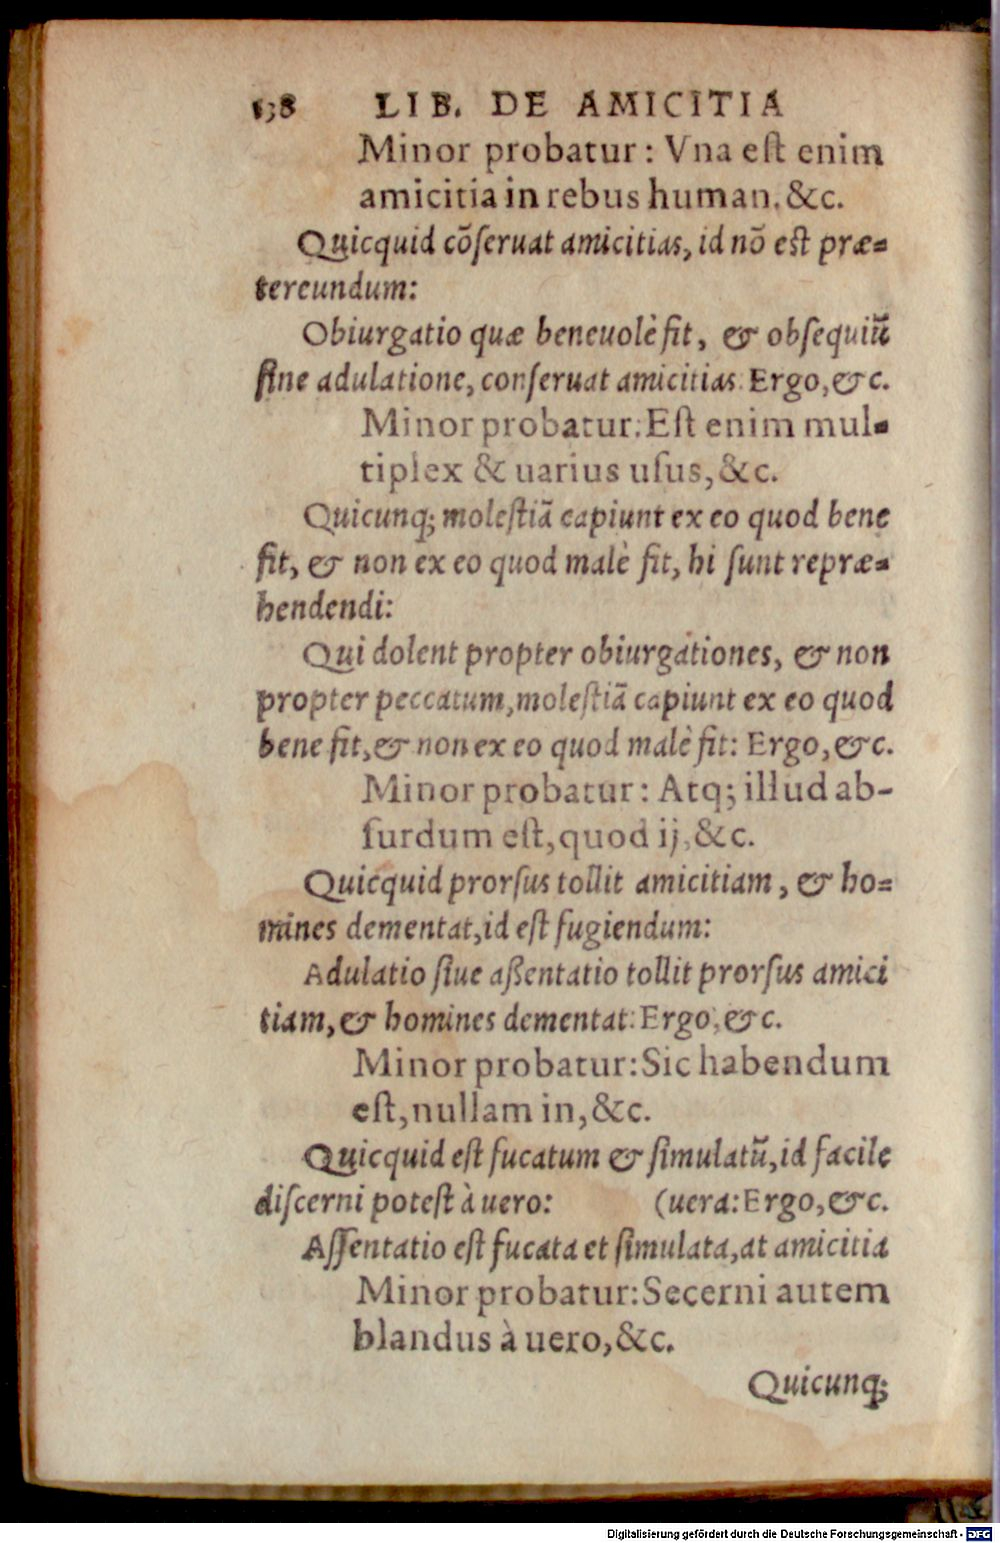 138 LIB. DE AMICITIA
Minor probatur: Vna eſt enim
amicitia in rebus human. &c.
Quicquid cõſeruat amicitias, id nõ est præ-
tereundum:
Obiurgatio quæ beneuolè fit, & obſequiũ
ſine adulatione, conſeruat amicitias: Ergo, &c.
Minor probatur: Eſt enim mul-
tiplex & uarius uſus, &c.
Quicunq; moleſtiã capiunt ex eo quod bene
fit, & non ex eo quod malè fit, hi ſunt repræ-
hendendi:
Qui dolent propter obiurgationes, & non
propter peccatum, moleſtiã capiunt ex eo quod
bene fit, & non ex eo quod malè fit: Ergo, &c.
Minor probatur: Atq; illud ab-
ſurdum eſt, quod ij, &c.
Quicquid prorſus tollit amicitiam, & ho-
mines dementat, id eſt fugiendum:
Adulatio ſiue aßentatio tollit prorſus amici
tiam, & homines dementat: Ergo, &c.
Minor probatur: Sic habendum
eſt, nullam in, &c.
Quicquid eſt fucatum & ſimulatũ, id facile
diſcerni poteſt à uero: (uera: Ergo, &c.
Aſſentatio eſt fucata et ſimulata, at amicitia
Minor probatur: Secerni autem
blandus à uero, &c.
Quicunq;
Digitalisierung gefördert durch die Deutsche Forschungsgemeinschaft - DFG